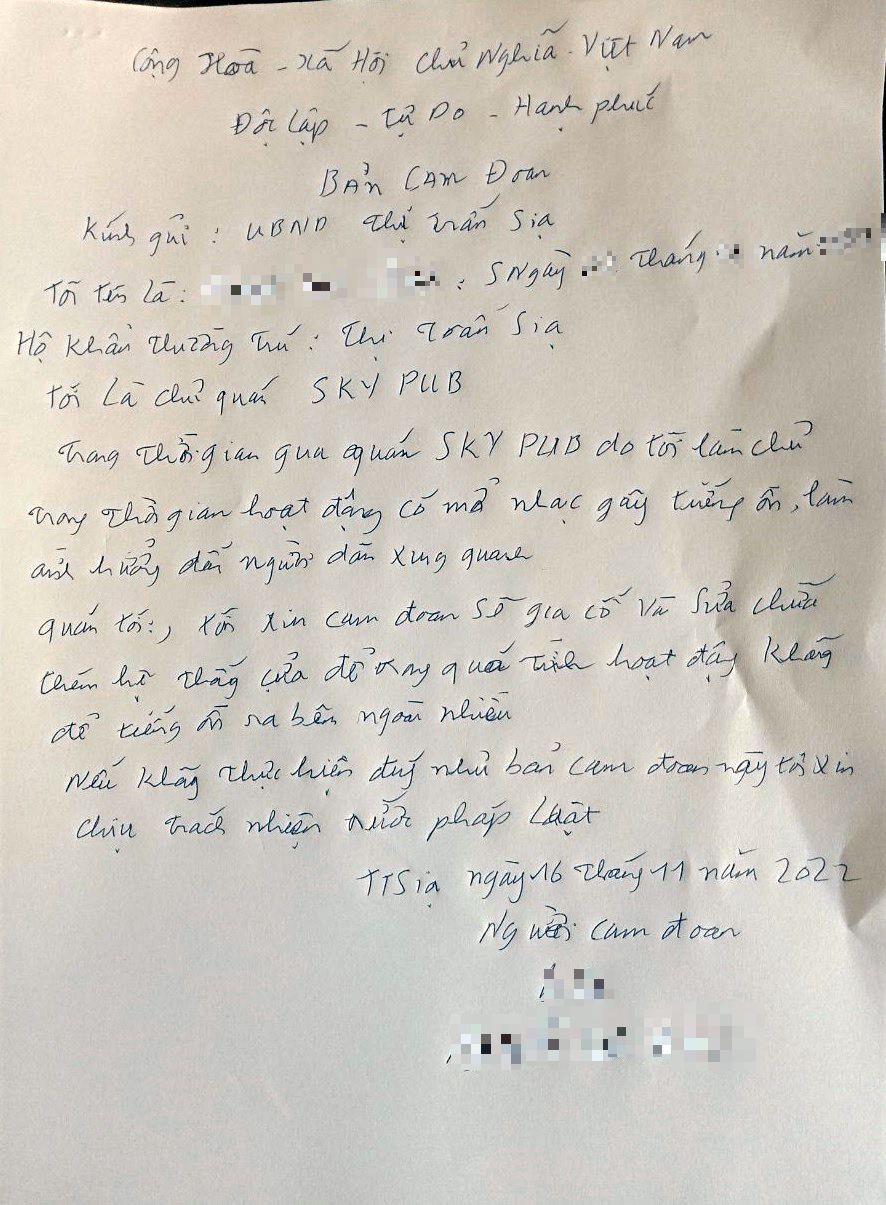 Cộng Hoà - Xã Hội Chủ Nghĩa - Việt Nam
Độc Lập - Tự Do - Hạnh phúc
BẢN CAM ĐOAN
Kính gửi : UBND Thị trấn Sịa
Tôi tên là : : SNgày tháng năm
Hộ khẩu thường trú : Thị trấn Sịa
Tôi Là chủ quán SKY PUB
Trong thời gian qua quán SKY PUB do tôi làm chủ
trong thời gian hoạt động có mở nhạc gây tiếng ồn, làm
ảnh hưởng đến người dân xung quanh
quán tôi:, tôi xin cam đoan sẽ gia cố và sửa chữa
thêm hệ thống cửa để trong quá trình hoạt động không
để tiếng ồn ra bên ngoài nhiều
Nếu không thực hiện đúng như bản cam đoan này tôi xin
chịu trách nhiệm trước pháp luật
TTSịa ngày 16 tháng 11 năm 2022
Người cam đoan